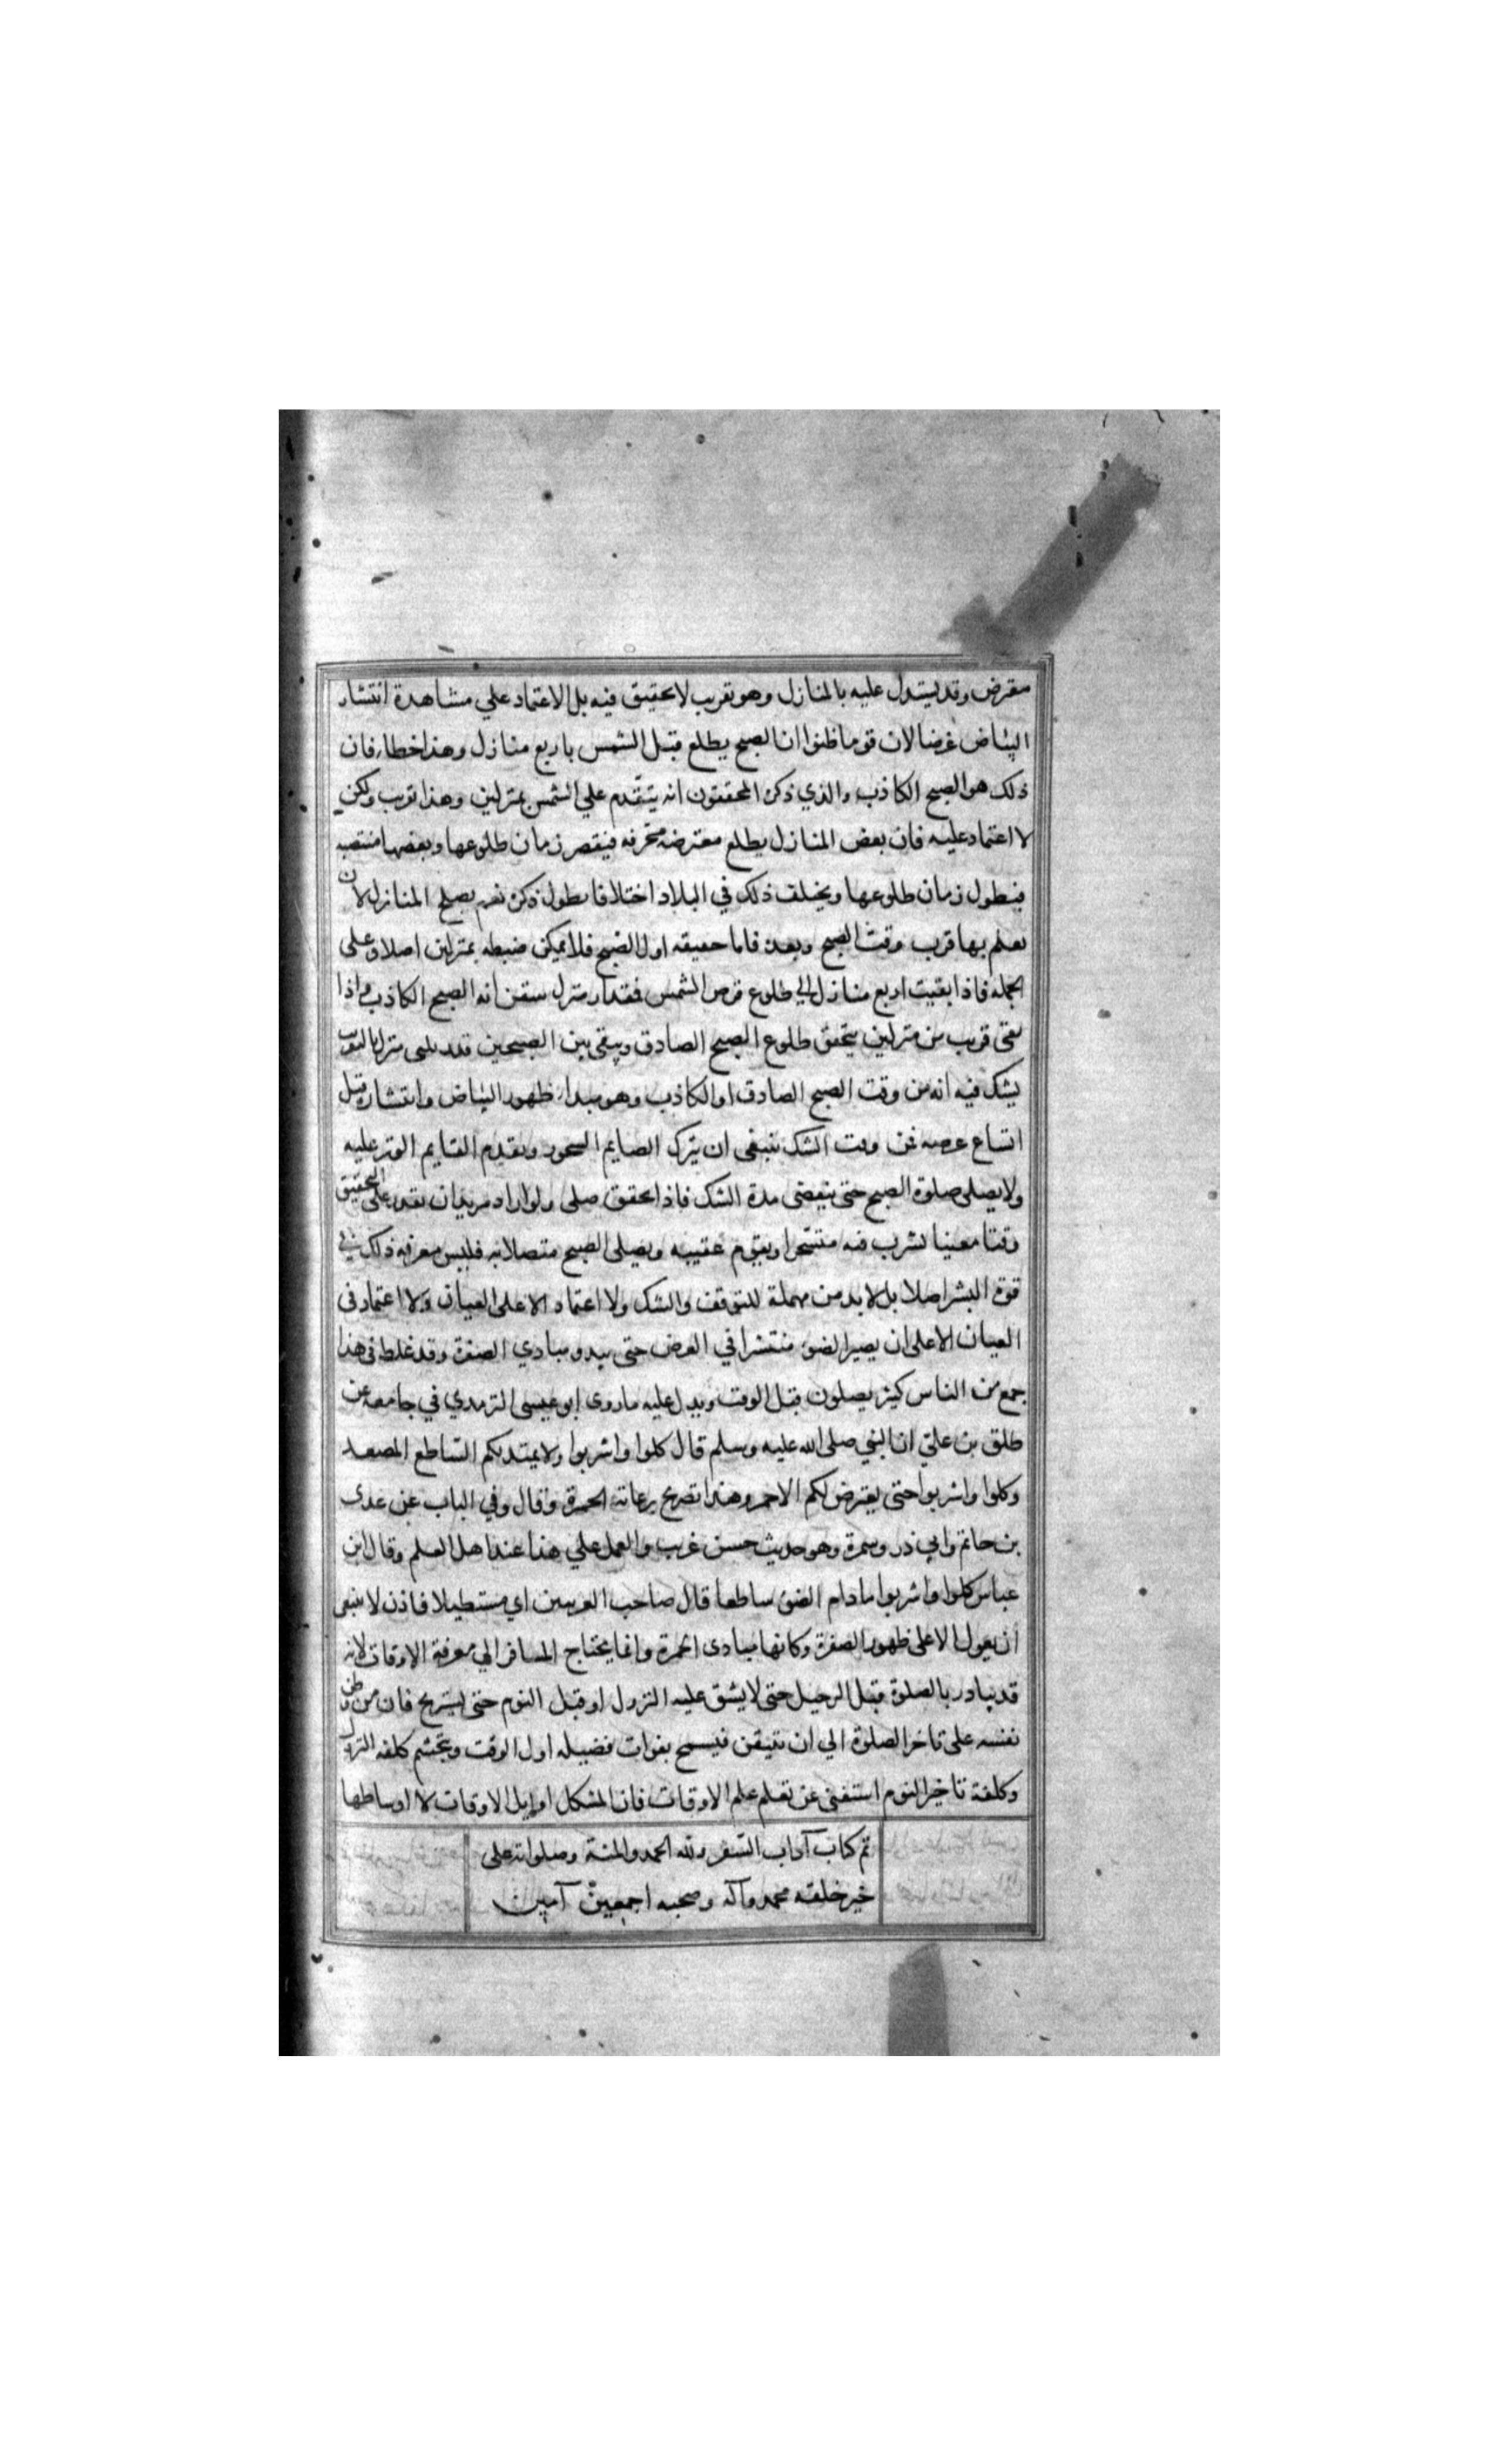 معرض وقد يستدل عليه بالمنازل وهو تقريب لا تحقيق فيه بل الاعتماد علي مشاهدة انتشار
البياض عرضا لان قوما ظنوا ان الصبح يطلع قبل الشمس باربع منازل وهذا خطاء فان
ذلك هو الصبح الكاذب والذي ذكره المحققون انه يتقدم علي الشمس بمنزلين وهذا تقريب ولكن
لا اعتماد عليه فان بعض المنازل يطلع معترضة منحرفه فيقصر زمان طلوعها وبعضها منتصبه
فيطول زمان طلوعها ويختلف ذلك في البلاد اختلافا يطول ذكره نعم يصلح المنازل لان
يعلم بها قرب وقت الصبح وبعده فاما حقيقه اول الصبح فلا يمكن ضبطه بمنزلين اصلا وعلى
الجملة فاذا بقيت اربع منازل الي طلوع قرص الشمس فمقدار منزل يتيقن انه الصبح الكاذب واذا
بقى قريب من منزلين يتحقق طلوع الصبح الصادق ويبقى بين الصبحين قدر ثلثى منزل بالتقريب
يشك فيه انه من وقت الصبح الصادق او الكاذب وهو مبداء ظهور البياض وانتشاره قبل
اتساع عرضه فمن وقت الشك ينبغى ان يترك الصايم السحور ويقدم القايم الوتر عليه
ولا يصلى صلوة الصبح حتى ينقضى مدة الشك فاذا تحقق صلى ولو اراد مريد ان يقدر على التحقيق
وقتا معينا يشرب فيه متسحرا ويقوم عقيبه ويصلى الصبح متصلا به فليس معرفه ذلك في
قوة البشر اصلا بل لا بد من مهملة للتوقف والشك ولا اعتماد الا على العيان ولا اعتماد فى
العيان الا على ان يصير الضوء منتشرا في العرض حتى يبدو مبادي الصفرة وقد غلط فى هذا
جمع من الناس كثير يصلون قبل الوقت ويدل عليه ما روى ابو عيسى الترمدي في جامعه عن
طلق بن علي ان النبي صلى الله عليه وسلم قال كلوا واشربوا ولا يهيدنكم الساطع المصعد
وكلوا واشربوا حتى يعترض لكم الاحمر وهذا تصريح برعاية الحمرة وقال وفي الباب عن عدى
بن حاتم وابي ذر وسمرة وهو حديث حسن غريب والعمل علي هذا عند اهل العلم وقال ابن
عباس كلوا واشربوا ما دام الضوء ساطعا قال صاحب الغريبين اي مستطيلا فاذن لا ينبغى
ان يعول الا على ظهور الصفرة وكانها مبادى الحمرة وانما يحتاج المسافر الي معرفة الاوقات لانه
قد يبادر بالصلوة قبل الرحيل حتى لا يشق عليه النزول او قبل النوم حتى يستريح فان من وطن
نفسه على تاخر الصلوة الي ان تتيقن فيسمح بفوات فضيله اول الوقت ويتجشم كلفه النزول
وكلفة تاخير النوم استغنى عن تعلم علم الاوقات فان المشكل اوايل الاوقات لا اوساطها
تم كتاب آداب السفر ولله الحمد والمنة وصلواته على
خير خلقه محمد وآله وصحبه اجمعين آمين